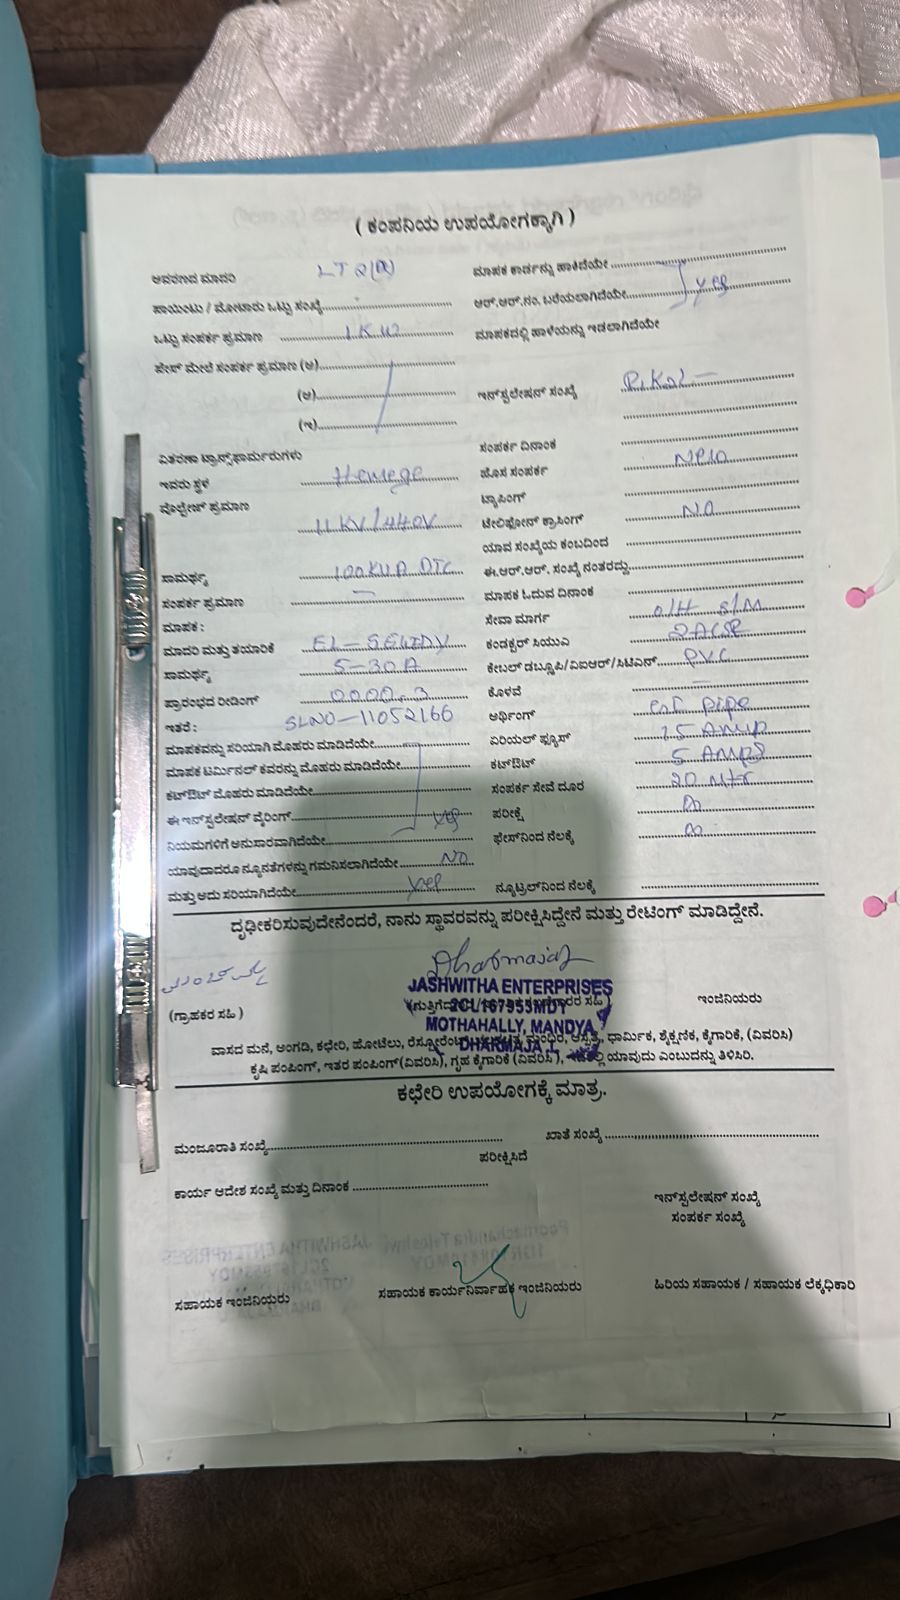 ( ಕಂಪನಿಯ ಉಪಯೋಗಕ್ಕಾಗಿ )
ಆವರಣದ ಮಾದರಿ LT 2(A) ಮಾಪಕ ಕಾರ್ಡನ್ನು ಹಾಕಿದೆಯೇ
ಪಾಯಿಂಟು / ಮೋಟಾರು ಒಟ್ಟು ಸಂಖ್ಯೆ ಆರ್.ಆರ್.ನಂ. ಬರೆಯಲಾಗಿದೆಯೇ yes
ಒಟ್ಟು ಸಂಪರ್ಕ ಪ್ರಮಾಣ 1 KW ಮಾಪಕದಲ್ಲಿ ಹಾಳೆಯನ್ನು ಇಡಲಾಗಿದೆಯೇ
ಫೇಸ್ ಮೇಲೆ ಸಂಪರ್ಕ ಪ್ರಮಾಣ (ಅ)
(ಆ) ಇನ್‌ಸ್ಟಲೇಷನ್ ಸಂಖ್ಯೆ
(ಇ)
ಸಂಪರ್ಕ ದಿನಾಂಕ
ವಿತರಣಾ ಟ್ರಾನ್ಸ್‌ಫಾರ್ಮರುಗಳು
ಇವರು ಸ್ಥಳ Hemege ಹೊಸ ಸಂಪರ್ಕ New
ವೋಲ್ಟೇಜ್ ಪ್ರಮಾಣ 11 KV/440V ಟ್ಯಾಪಿಂಗ್
ಟೆಲಿಫೋನ್ ಕ್ರಾಸಿಂಗ್ NO
ಯಾವ ಸಂಖ್ಯೆಯ ಕಂಬದಿಂದ
ಸಾಮರ್ಥ್ಯ 100KVA DTC ಈ.ಆರ್.ಆರ್. ಸಂಖ್ಯೆ ನಂತರದ್ದು
ಸಂಪರ್ಕ ಪ್ರಮಾಣ — ಮಾಪಕ ಓದುವ ದಿನಾಂಕ
ಮಾಪಕ : ಸೇವಾ ಮಾರ್ಗ O/H S/M
ಮಾದರಿ ಮತ್ತು ತಯಾರಿಕೆ ಕಂಡಕ್ಟರ್ ಸಿಯುಎ 2ACSR
ಸಾಮರ್ಥ್ಯ 5-30A ಕೇಬಲ್ ಡಬ್ಲೂಪಿ/ವಿಐಆರ್/ಸಿಟಿಎಸ್ PVC
ಪ್ರಾರಂಭದ ರೀಡಿಂಗ್ 0000.3 ಕೊಳವೆ —
ಇತರೆ : SLNO-11052166 ಅರ್ಥಿಂಗ್ pipe
ಮಾಪಕವನ್ನು ಸರಿಯಾಗಿ ಮೊಹರು ಮಾಡಿದೆಯೇ ಏರಿಯಲ್ ಫ್ಯೂಸ್ 15 Amp
ಮಾಪಕ ಟರ್ಮಿನಲ್ ಕವರನ್ನು ಮೊಹರು ಮಾಡಿದೆಯೇ ಕಟ್‌ಔಟ್ 5 Amps
ಕಟ್‌ಔಟ್ ಮೊಹರು ಮಾಡಿದೆಯೇ ಸಂಪರ್ಕ ಸೇವೆ ದೂರ 20 Mtr
ಈ ಇನ್‌ಸ್ಟಲೇಷನ್ ವೈರಿಂಗ್ yes ಪರೀಕ್ಷೆ ∞
ನಿಯಮಗಳಿಗೆ ಅನುಸಾರವಾಗಿದೆಯೇ ಫೇಸ್‌ನಿಂದ ನೆಲಕ್ಕೆ ∞
ಯಾವುದಾದರೂ ನ್ಯೂನತೆಗಳನ್ನು ಗಮನಿಸಲಾಗಿದೆಯೇ NO
ಮತ್ತು ಅದು ಸರಿಯಾಗಿದೆಯೇ yes ನ್ಯೂಟ್ರಲ್‌ನಿಂದ ನೆಲಕ್ಕೆ
ದೃಢೀಕರಿಸುವುದೇನೆಂದರೆ, ನಾನು ಸ್ಥಾವರವನ್ನು ಪರೀಕ್ಷಿಸಿದ್ದೇನೆ ಮತ್ತು ರೇಟಿಂಗ್ ಮಾಡಿದ್ದೇನೆ.
Dharmaraj
JASHWITHA ENTERPRISES
2CL/167953MDY
MOTHAHALLY, MANDYA
DHARMAJA
(ಗ್ರಾಹಕರ ಸಹಿ ) ಇಂಜಿನಿಯರು
ವಾಸದ ಮನೆ, ಅಂಗಡಿ, ಕಛೇರಿ, ಹೋಟೆಲು, ಮಂದಿರ, ಆಸ್ಪತ್ರೆ, ಧಾರ್ಮಿಕ, ಶೈಕ್ಷಣಿಕ, ಕೈಗಾರಿಕೆ, (ವಿವರಿಸಿ)
ಕೃಷಿ ಪಂಪಿಂಗ್, ಇತರ ಪಂಪಿಂಗ್ (ವಿವರಿಸಿ), ಗೃಹ ಕೈಗಾರಿಕೆ (ವಿವರಿಸಿ), ಯಾವುದು ಎಂಬುದನ್ನು ತಿಳಿಸಿರಿ.
ಕಛೇರಿ ಉಪಯೋಗಕ್ಕೆ ಮಾತ್ರ.
ಮಂಜೂರಾತಿ ಸಂಖ್ಯೆ ಖಾತೆ ಸಂಖ್ಯೆ
ಪರೀಕ್ಷಿಸಿದೆ
ಕಾರ್ಯ ಆದೇಶ ಸಂಖ್ಯೆ ಮತ್ತು ದಿನಾಂಕ
ಇನ್‌ಸ್ಟಲೇಷನ್ ಸಂಖ್ಯೆ
ಸಂಪರ್ಕ ಸಂಖ್ಯೆ
ಸಹಾಯಕ ಇಂಜಿನಿಯರು ಸಹಾಯಕ ಕಾರ್ಯನಿರ್ವಾಹಕ ಇಂಜಿನಿಯರು ಹಿರಿಯ ಸಹಾಯಕ / ಸಹಾಯಕ ಲೆಕ್ಕಧಿಕಾರಿ